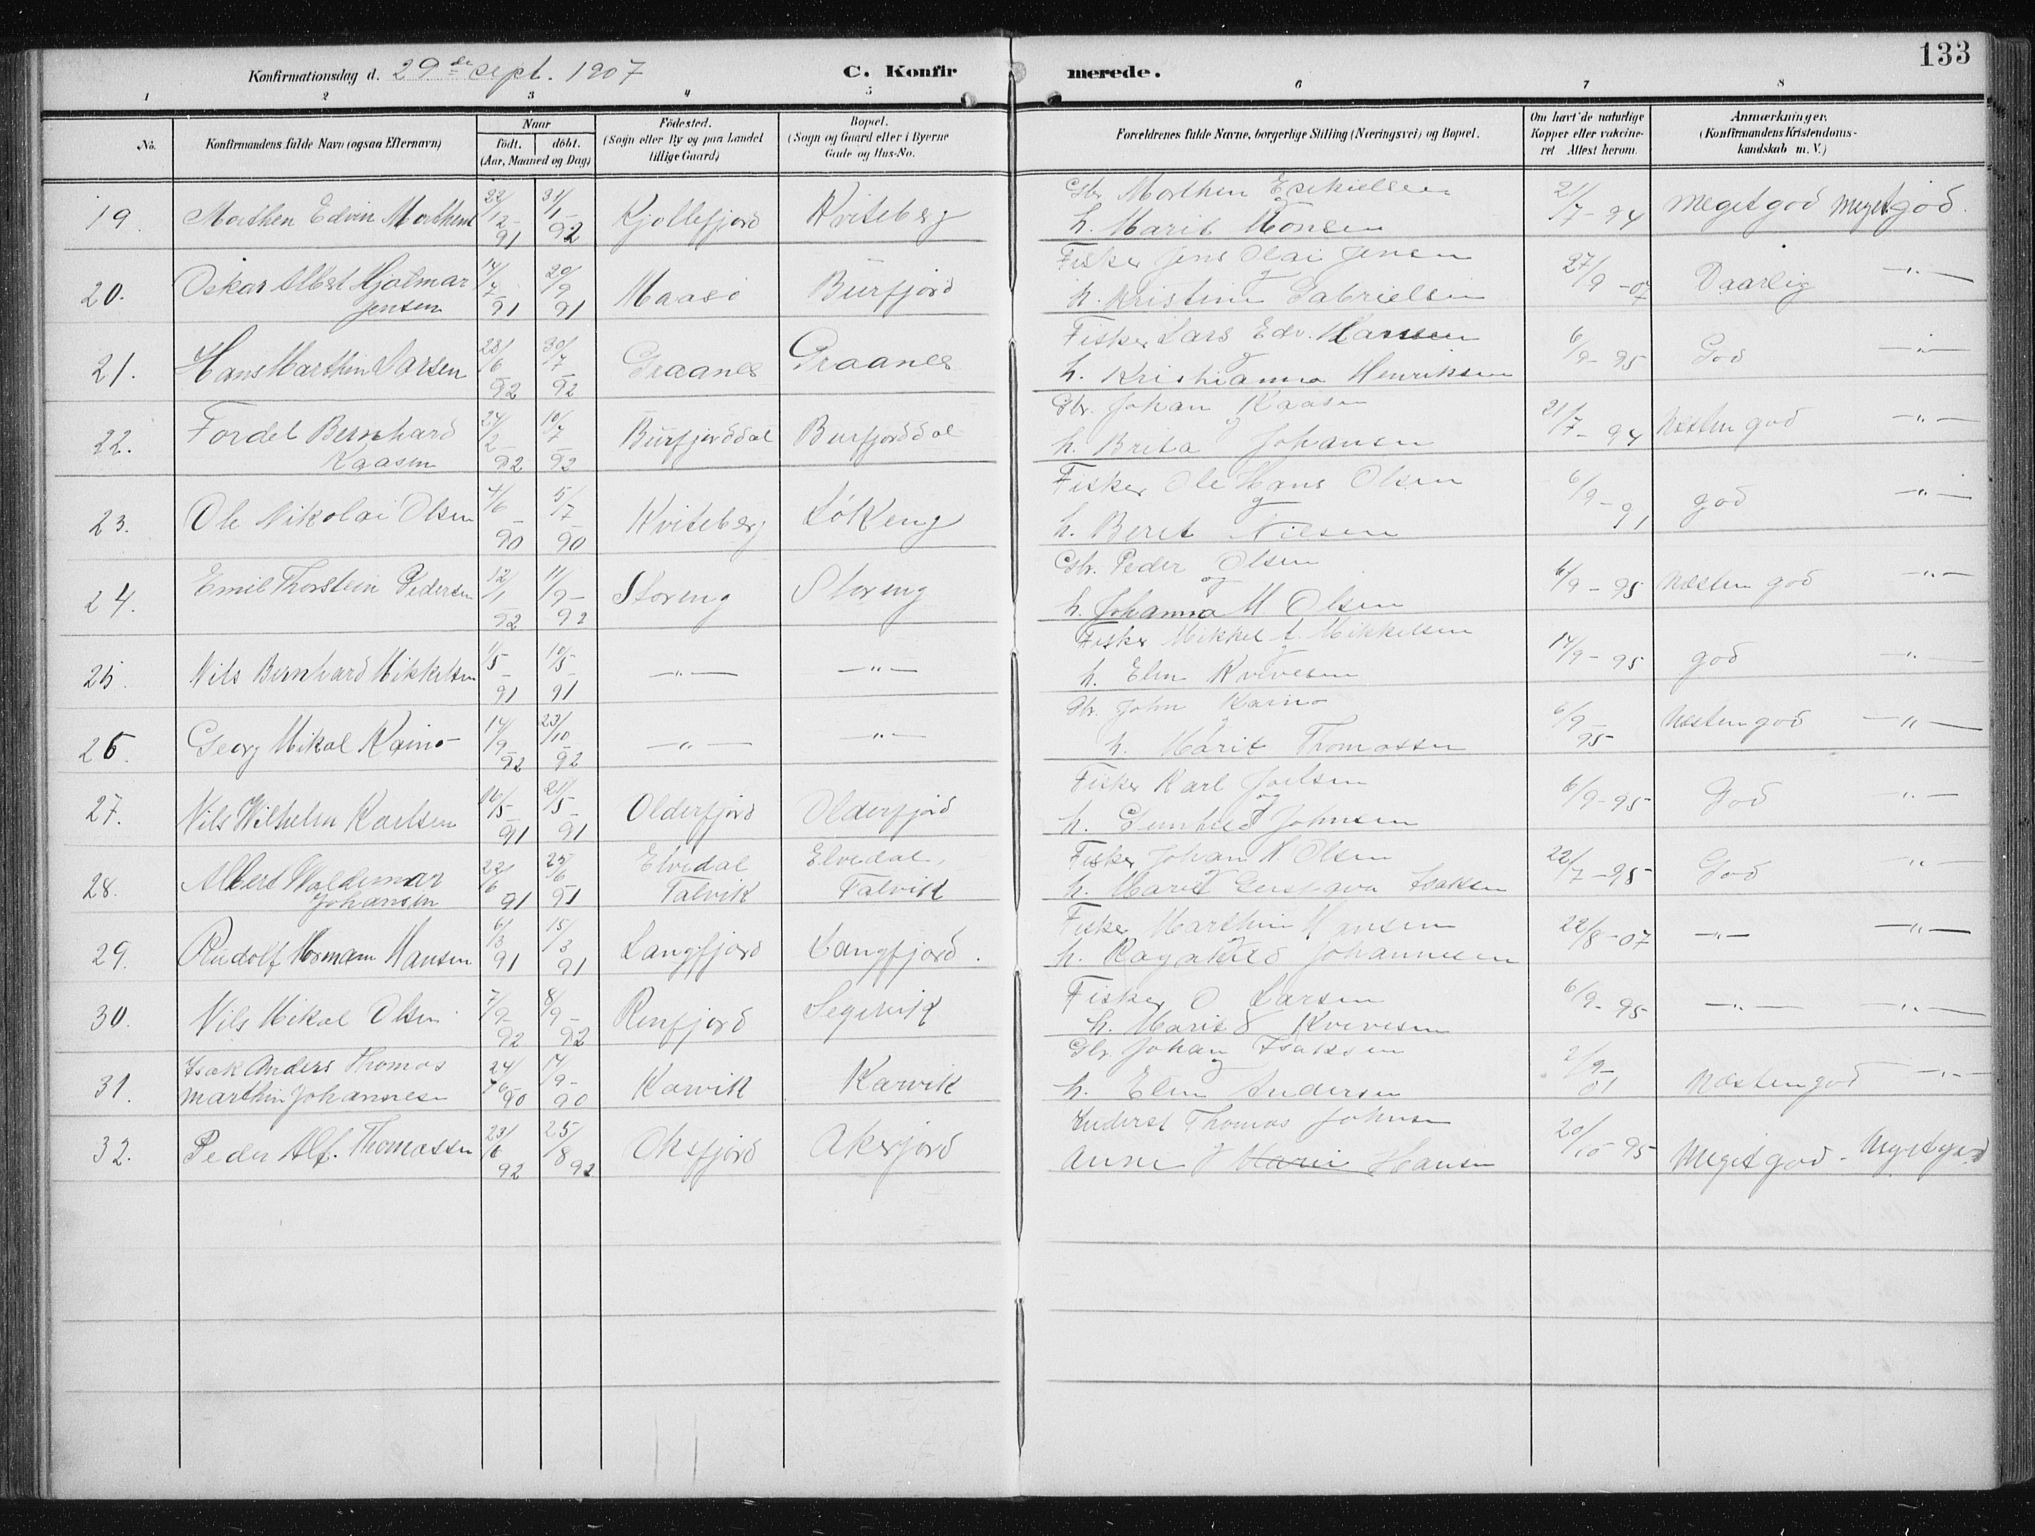 133
Konfirmationsdag d. 29de sept. 1907 C. Konfirmerede.
1 2 3 4 5 6 7 8
No. Konfirmandens fulde Navn (ogsaa Efternavn) Naar født. døbt. (Aar, Maaned og Dag) Fødested. (Sogn eller By og paa Landet tillige Gaard) Bopæl. (Sogn og Gaard eller i Byerne Gade og Hus-No. Forældrenes fulde Navne, borgerlige Stilling (Næringsvei) og Bopæl. Om havt de naturlige Kopper eller vakcineret Attest herom. Anmærkninger. (Konfirmandens Kristendomskundskab m. V.)
19. Morthen Edvin Morthens 22/12-91 31/1-92 Kjøllefjord Kviteberg Gbr Morthen Esekielsen og h. Marit Monsen 21/7-94 Meget god Meget god.
20. Oskar Albert Hjalmar Jensen 14/7 91 20/9 91 Maasö Burfjord Fisker Jens Olai Jensen og h. Kristine Gabrielsen 27/9-07 Daarlig —"—
21. Hans Marthin Larsen 23/6 92 30/7 92 Graanes Graanes Fisker Lars Edv. Hansen og h. Kristianna Henriksen 6/9-95 God —"—
22. Fordel Bernhard Kaasen 24/2 92 10/7 92 Burfjorddal Burfjorddal Gbr. Johan Kaasen og h. Brita Johansen 21/7-94 Næsten god —"—
23. Ole Nikolai Olsen 4/6-90 5/7-90 Kviteberg Løkeng Fisker Ole Hans Olsen og h. Beret Nilsen 6/9-91 god —"—
24. Emil Thorstein Pedersen 12/1 92 11/9-92 Storeng Storeng Gbr. Peder Olsen og h. Johanna M Olsen 6/9-95 Næsten god —"—
25. Nils Bernhard Mikkelsen 1/5-91 10/5-91 —"— —"— Fisker Mikkel A. Mikkelsen h. Elen Kvivesen 14/9-95 god —"—
26 Georg Mikal Kaino 14/9-92 23/10-92 —"— —"— Gbr. John Kaino h. Marit Thomassen 6/9-95 Næsten god —"—
27. Nils Wilhelm Karlsen 16/5-91 21/5-91 Olderfjord Olderfjord Fisker Karl Joelsen og h. Gunhild Johnsen 6/9-95 God —"—
28. Albert Waldemar Johansen 22/6 91 25/6 91 Elvedal Talvik Elvedal, Talvik Fisker Johan N Olsen h. Marit Gustava Isaksen 22/7-95 God —"—
29. Rudolf Herman Hansen 6/3 91 15/3 91 Langfjord Langfjord. Fisker Marthin Hansen h. Ragnhild Johannesen 22/8-07 —"— —"—
30. Nils Mikal Olsen 7/2-92 8/9-92 Renfjord Segelvik Fisker O Larsen h. Marit Kvivesen 6/9-95 —"— —"—
31. Isak Anders Thomas Marthin Johannesen 24/6-90 14/9-90 Karvik Karvik Gbr. Johan Isaksen og h. Elen Andersen 2/9-01 Næsten god —"—
32. Peder Alf. Thomassen 23/6 92 25/8 92 Oksfjord Oksfjord Inderst Thomas Johnsen Anne Marie Hansen 20/10 95 Meget god - Meget god